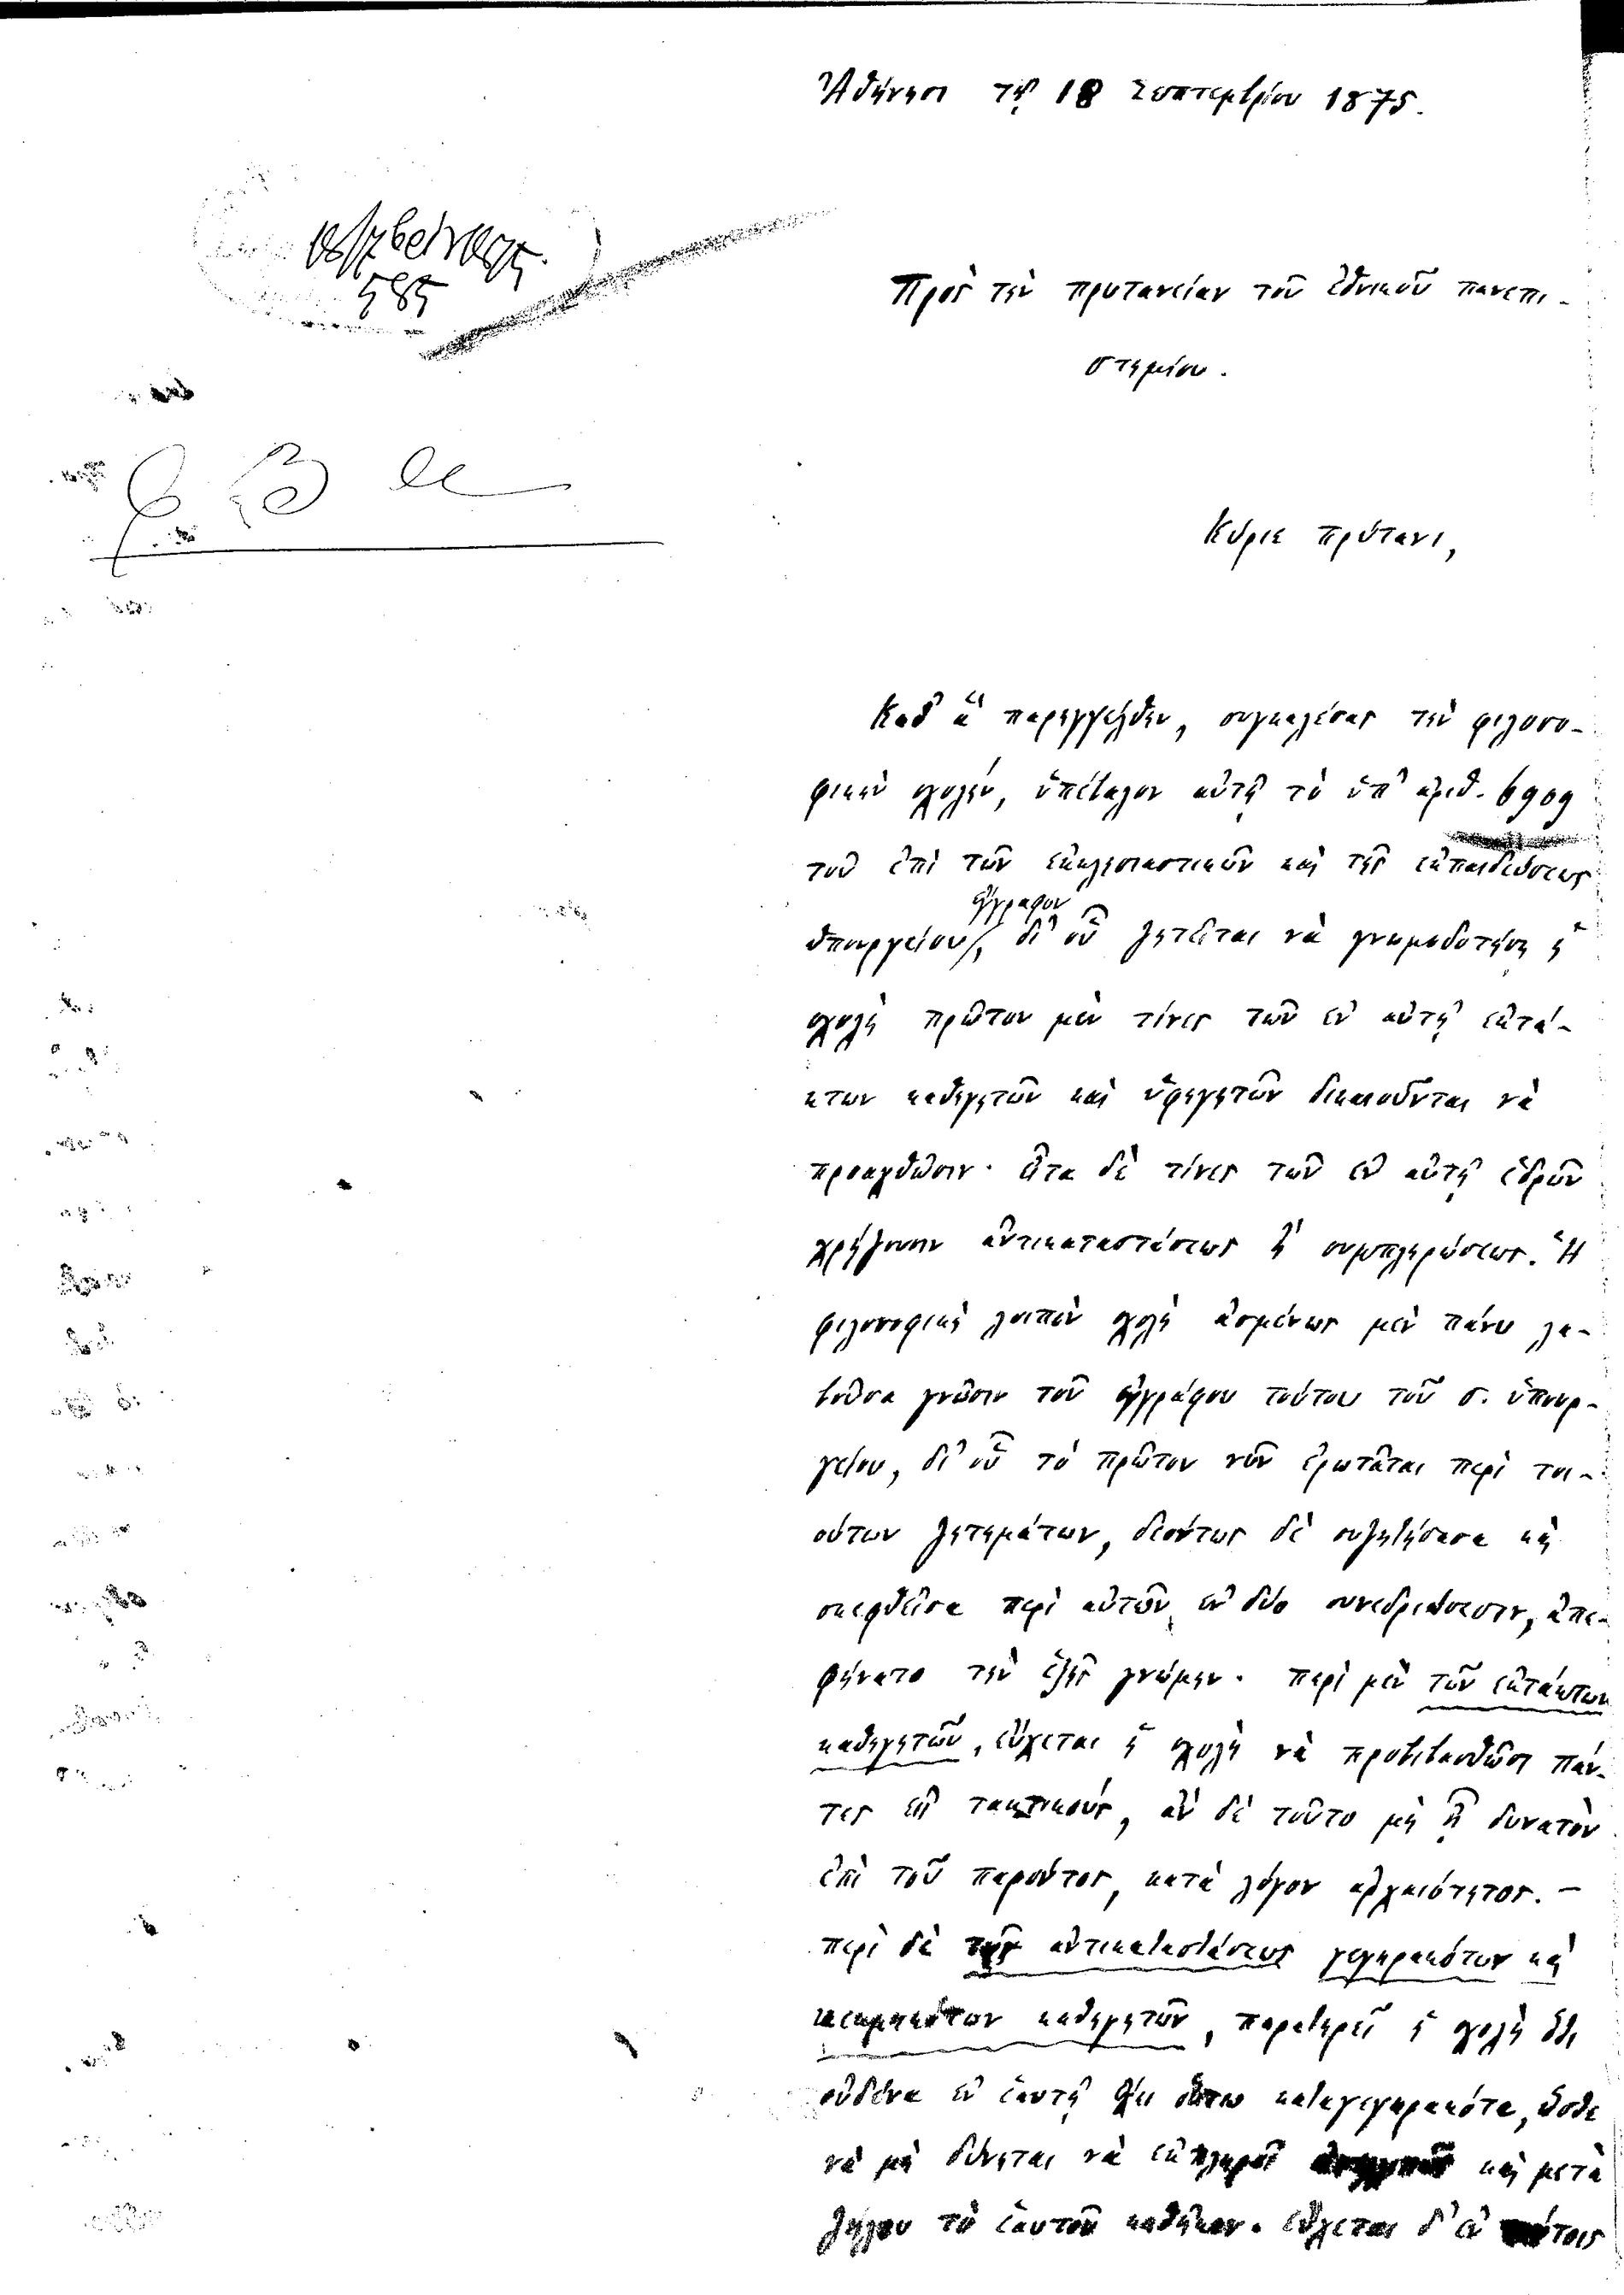 Ἀθήνησι τῇ 18 Σεπτεμβρίου 1875.
585
Πρὸς τὴν πρυτανείαν τοῦ ἐθνικοῦ πανεπι-
στημίου.
Κύριε πρύτανι,
Καθ' ἃ παρηγγέλθην, συγκαλέσας τὴν φιλοσο-
φικὴν σχολήν, ὑπέβαλον αὐτῇ τὸ ὑπ' ἀριθ. 6909
τοῦ ἐπὶ τῶν ἐκκλησιαστικῶν καὶ τῆς ἐκπαιδεύσεως
ἔγγραφον
ὑπουργείου, δι' οὗ ζητεῖται νὰ γνωμοδοτήσῃ ἡ
σχολὴ πρῶτον μὲν τίνες τῶν ἐν αὐτῇ ἐκτά-
κτων καθηγητῶν καὶ ὑφηγητῶν δικαιοῦνται νὰ
προαχθῶσιν· εἶτα δὲ τίνες τῶν ἐν αὐτῇ ἑδρῶν
χρῄζουσιν ἀντικαταστάσεως ἢ συμπληρώσεως. Ἡ
φιλοσοφικὴ λοιπὸν σχολὴ ἀσμένως μὲν πάνυ λα-
βοῦσα γνῶσιν τοῦ ἐγγράφου τούτου τοῦ σ. ὑπουρ-
γείου, δι' οὗ τὸ πρῶτον νῦν ἐρωτᾶται περὶ τοι-
ούτων ζητημάτων, δεόντως δὲ συζητήσασα καὶ
σκεφθεῖσα περὶ αὐτῶν ἐν δύο συνεδριάσεσιν, ἀπε-
φήνατο τὴν ἑξῆς γνώμην. περὶ μὲν τῶν ἐκτάκτων
καθηγητῶν, εὔχεται ἡ σχολὴ νὰ προβιβασθῶσι πάν-
τες εἰς τακτικούς, ἂν δὲ τοῦτο μὴ ᾖ δυνατὸν
ἐπὶ τοῦ παρόντος, κατὰ λόγον ἀρχαιότητος. —
περὶ δὲ τῆς ἀντικαταστάσεως γεγηρακότων καὶ
κεκμηκότων καθηγητῶν, παρατηρεῖ ἡ σχολὴ ὅτι
οὐδένα ἐν ἑαυτῇ ἔχει οὕτω καταγεγηρακότα, ὥστε
νὰ μὴ δύνηται νὰ ἐκπληροῖ καὶ μετὰ
ζήλου τὸ ἑαυτοῦ καθῆκον. εὔχεται δ' ἐν